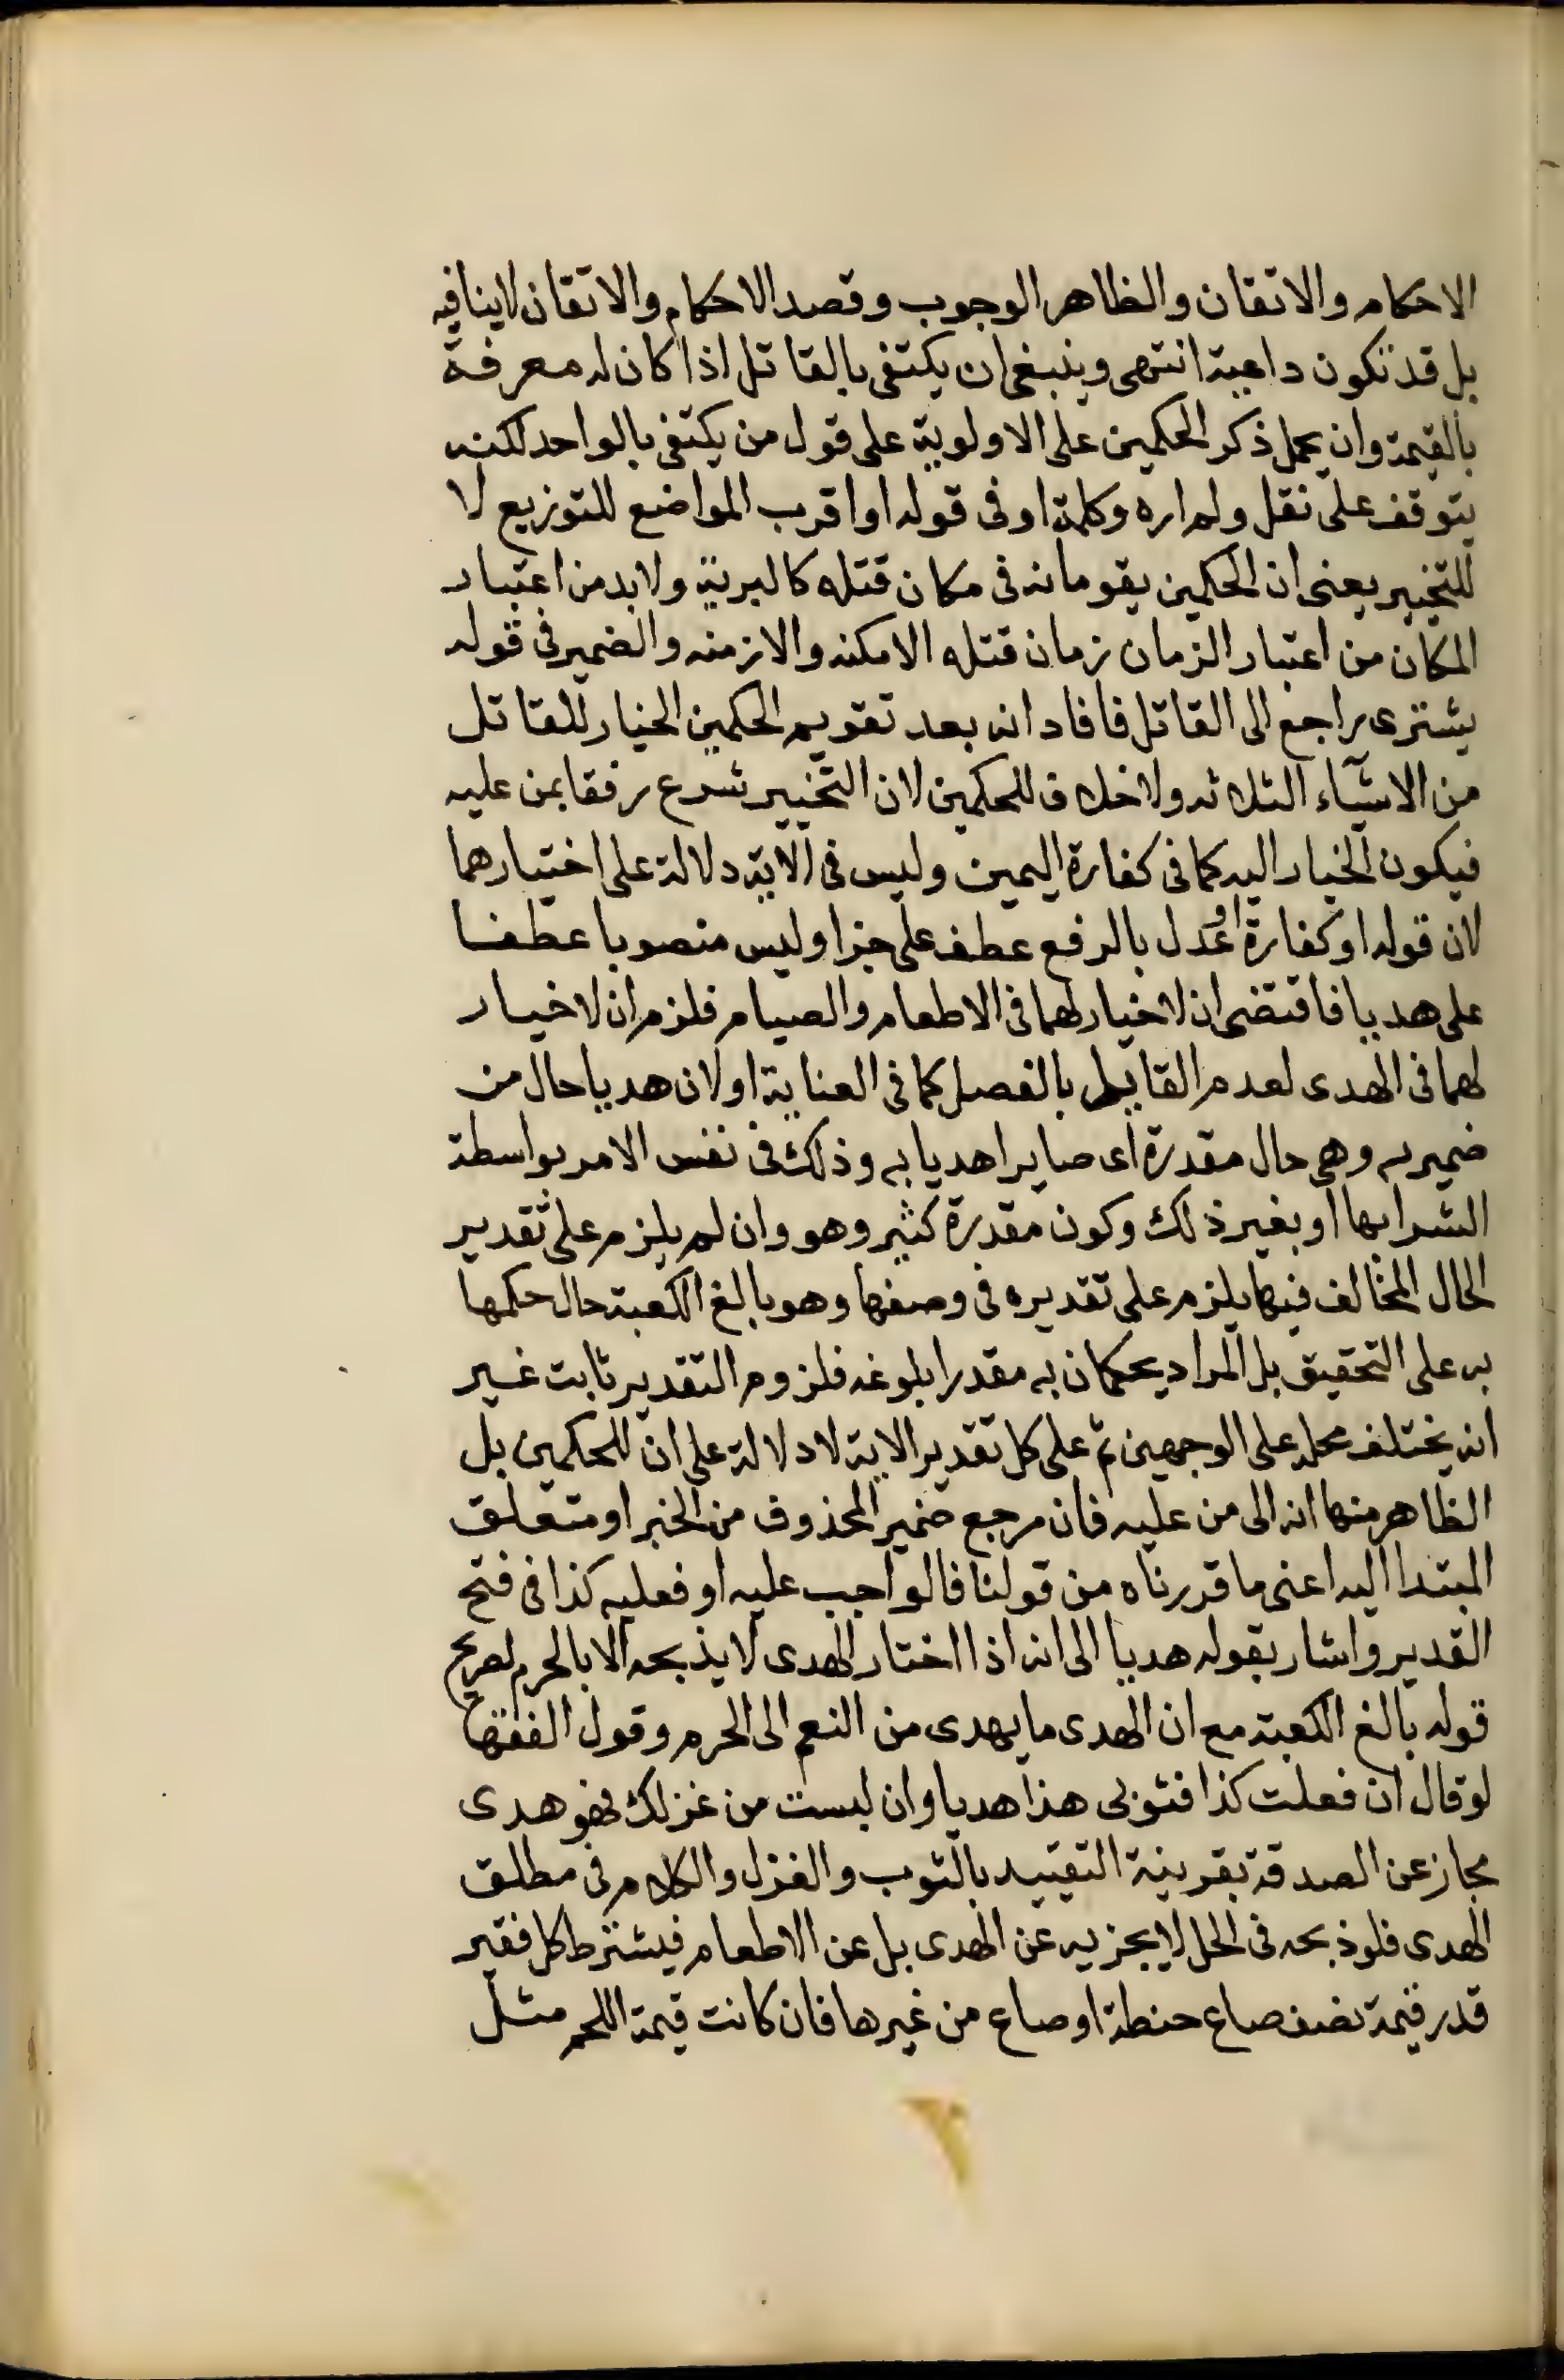 الاحكام والاتقان والظاهر الوجوب وقصد الاحكام والاتقان لاينافيه
بل قد تكون داعية انتهى وينبغى ان يكتفى بالقاتل اذا كان له معرفة
بالقيمة وان يحمل ذكر الحكمين على الاولوية على قول من يكتفى بالواحد لكنه
يتوقف على نقل ولم اره وكلمة او فى قوله او اقرب المواضع للتوزيع لا
للتخيير يعنى ان الحكمين يقومانه فى مكان قتله كالبرية ولا بد من اعتبار
المكان من اعتبار الزمان زمان قتله الامكنه والازمنه والضمير فى قوله
يشترى راجع الى القاتل فافاد انه بعد تقويم الحكمين الخيار للقاتل
من الاشياء الثلاثه ولا خلاف للحكمين لان التخيير شرع رفقا بمن عليه
فيكون الخيار اليه كما فى كفارة اليمين وليس فى الاية دلالة على اختيارهما
لان قوله او كفارة او عدل بالرفع عطف على جزا وليس منصوبا عطفا
على هديا فاقتضى ان لا خيار لهما فى الاطعام والصيام فلزم ان لا خيار
لهما فى الهدى لعدم القايل بالفصل كما فى العناية او لان هديا حال من
ضمير به وهى حال مقدرة اى صايرا هديا به وذلك فى نفس الامر بواسطة
الشرا بها او بغير ذلك وكون مقدرة كثير وهو وان لم يلزم على تقدير
الحال المخالف فيها يلزم على تقديره فى وصفها وهو بالغ الكعبة حال حكمها
به على التحقيق بل المراد يحكمان به مقدرا بلوغه فلزوم التقدير ثابت غير
انه يختلف محله على الوجهين ثم على كل تقدير الاية لا دلالة على ان للحكمين بل
الظاهر منها انه الى من عليه فان مرجع ضمير المحذوف من الخبر او متعلق
المبتدا اليه اعنى ما قررناه من قولنا فالواجب عليه او فعليه كذا فى فتح
القدير واشار بقوله هديا الى انه اذا اختار الهدى لا يذبحه الا بالحرم لصريح
قوله بالغ الكعبة مع ان الهدى ما يهدى من النعم الى الحرم وقول الفقها
لو قال ان فعلت كذا فثوبى هذا هديا وان لبست من غزلك فهو هدى
مجاز عن الصدقة بقرينة التقييد بالثوب والغزل والكلام فى مطلق
الهدى فلو ذبحه فى الحل لا يجزيه عن الهدى بل عن الاطعام فيشترط كل فقير
قدر قيمة نصف صاع حنطة او صاع من غيرها فان كانت قيمة اللحم مثل